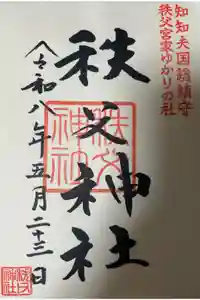 知知夫国総鎮守
秩父宮家ゆかりの社
秩父神社
秩父神社
令和八年五月二十三日